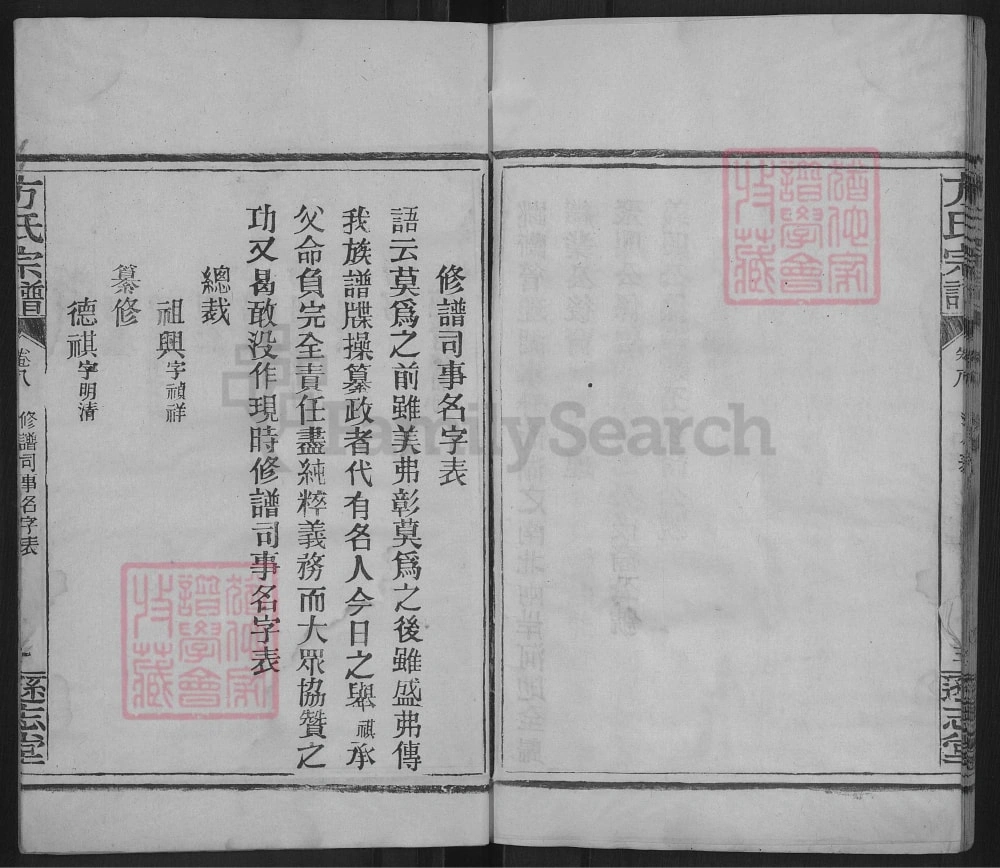 方氏宗譜
遜志堂
修譜司事名字表
語云莫爲之前雖美弗彰莫爲之後雖盛弗傳
我族譜牒操纂政者代有名人今日之舉祺承
父命負完全責任盡純粹義務而大眾協贊之
功又曷敢没作現時修譜司事名字表
總裁
祖興字禎祥
纂修
德祺字明清
方氏宗譜
卷八
修譜司事名字表
一
遜志堂
FamilySearch
譜學會
特藏
譜學會
特藏